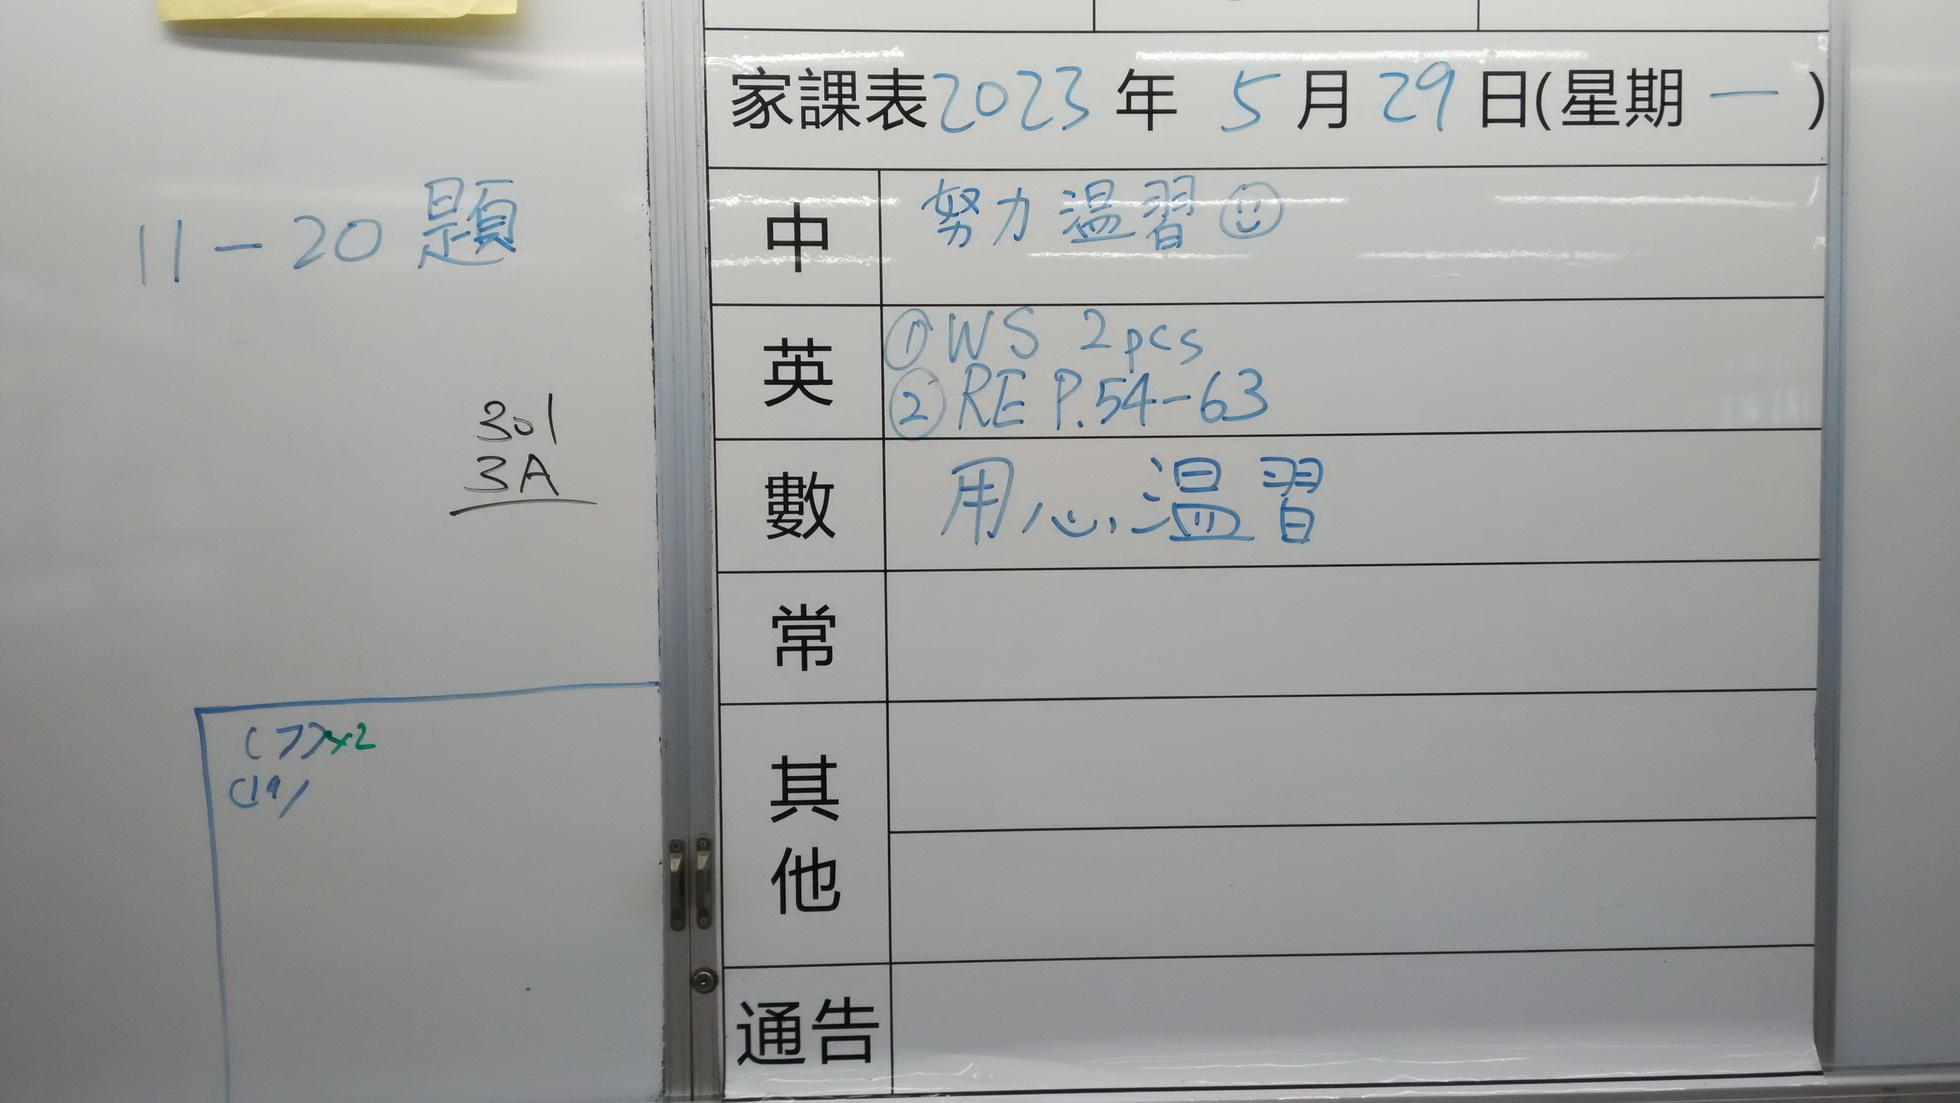 家課表2023年 5月29日(星期一)
中 努力温習
英 ①WS 2pcs
②RE P.54-63
數 用心温習
常
其他
通告
11-20題
301
3A
(7)x2
(19)